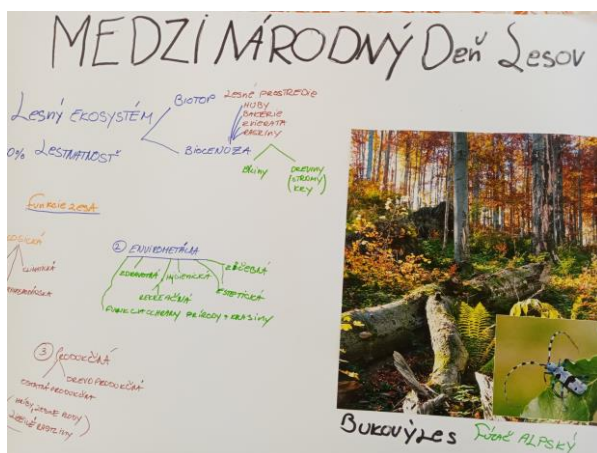 MEDZINÁRODNÝ Deň Lesov
LESNÝ EKOSYSTÉM
BIOTOP LESNÉ PROSTREDIE
HUBY
BAKÉRIE
ZVIERATÁ
RASTLINY
0% LESNATNOSŤ
BIOCENÓZA
BYLINY
DREVINY
(STROMY)
KRY
FUNKCIE LESA
② ENVIROMETÁLNA
ZDRAVOTNÁ HYGIENICKÁ LIEČEBNÁ
REKREAČNÁ ESTETICKÁ
FUNKCIA OCHRANY PRÍRODY + KRAJINY
③ PRODUKČNÁ
DREVOPRODUKČNÁ
OSTATNÁ PRODUKČNÁ
(HUBY, LESNÉ PLODY
LIEČIVÉ RASTLINY)
BUKOVÝ LES FÚZAČ ALPSKÝ